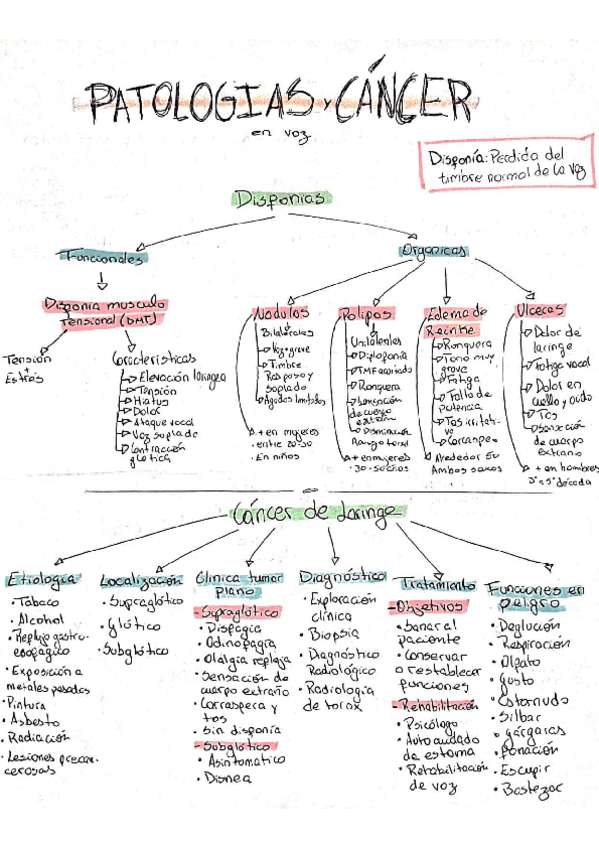 PATOLOGIAS Y CÁNCER
en voz
Disponía: Perdida del
timbre normal de la voz
Disponias
Funcionales
Organicas
Disponia musculo
Tensional (DMT)
Tensión
+
Estrés
Caracteristicas
Elevación laringea
Tensión
Hiatus
Dolor
Ataque vocal
Voz soplada
Contracción
glótica
Nodulos
Bilaterales
Voz grave
Timbre
Rasposo y
soplado
Agudos limitados
+ en mujeres
entre 20-30
· En niños
Polipos
Unilaterales
Diplofonia
TMF acortado
Ronquera
Sensación
de cuerpo
extraño
Disminución
Rango tonal
+ en mujeres
· 30-50 años
Edema de
Reinke
Ronquera
Tono muy
grave
Fatiga
Falta de
potencia
Tos irritati-
va
Carraspeo
Alrededor 50
Ambos sexos
Ulceras
Dolor de
laringe
Fatiga vocal
Dolor en
cuello y oído
Tos
Sensación
de cuerpo
extraño
+ en hombres
3ª y 5ª decada
Cáncer de Laringe
Etiología
· Tabaco
· Alcohol
· Reflujo gastro-
esofagico
· Exposición a
metales pesados
· Pintura
· Asbesto
· Radiación
· Lesiones precan-
cerosas
Localización
· Supraglótico
· Glótico
· Subglótico
Clínica tumor
plano
- Supraglótico
· Disfagia
· Odinofagia
· Otalgia refleja
· Sensación de
cuerpo extraño
· Carraspera y
tos
· Sin disponía
- Subglótico
· Asintomatico
· Disnea
Diagnóstico
· Exploración
clínica
· Biopsia
· Diagnóstico
Radiológico
· Radiología
de torax
Tratamiento
- Objetivos
· Sanar al
paciente
· Conservar
o restablecer
funciones
- Rehabilitación
· Psicólogo
· Autocuidado
de estoma
· Rehabilitación
de voz
Funciones en
peligro
· Deglución
· Respiración
· Olfato
· Gusto
· Estornudo
· Silbar
· gárgaras
· Fonación
· Escupir
· Bostezar